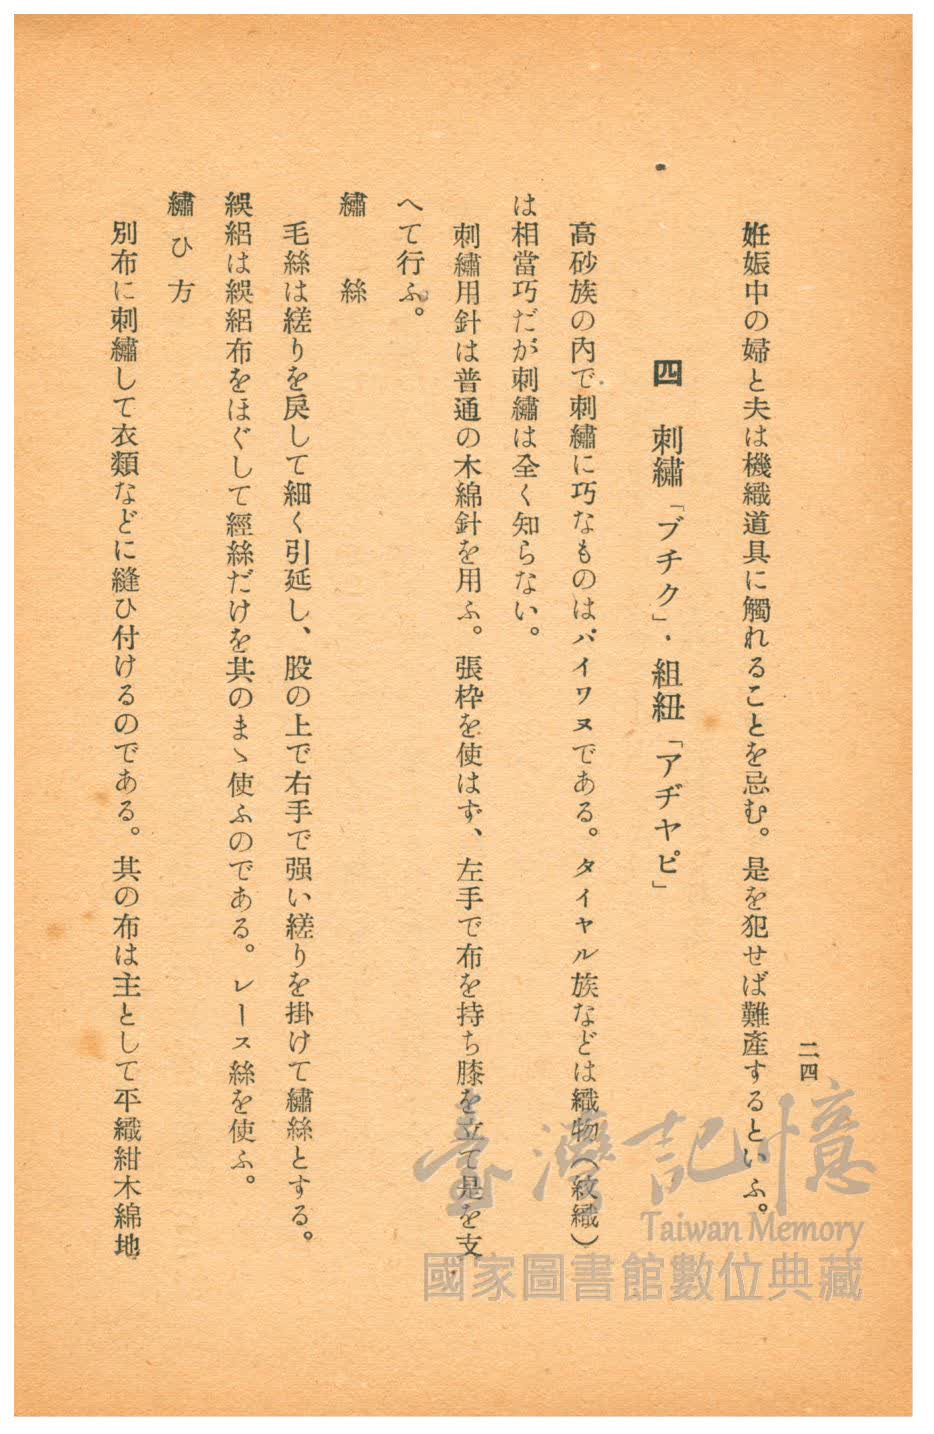 二四
妊娠中の婦と夫は機織道具に觸れることを忌む。是を犯せば難產するといふ。
四　刺繡「ブチク」・組紐「アヂヤピ」
高砂族の內で刺繡に巧なものはパイワヌである。タイヤル族などは織物（紋織）
は相當巧だが刺繡は全く知らない。
刺繡用針は普通の木綿針を用ふ。張枠を使はず、左手で布を持ち膝を立て是を支
へて行ふ。
繡　絲
毛絲は縒りを戾して細く引延し、股の上で右手で强い縒りを掛けて繡絲とする。
絽は絽布をほぐして經絲だけを其のまゝ使ふのである。レース絲を使ふ。
繡ひ方
別布に刺繡して衣類などに縫ひ付けるのである。其の布は主として平織紺木綿地
臺灣記憶
Taiwan Memory
國家圖書館數位典藏